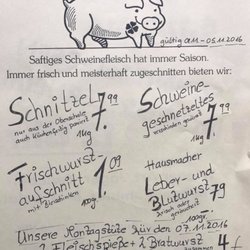 gültig 01.11 - 05.11.2016
Saftiges Schweinefleisch hat immer Saison.
Immer frisch und meisterhaft zugeschnitten bieten wir:
Schnitzel 7.99
nur aus der Oberschale
auch küchenfertig paniert
1kg
Schweine-
geschnetzeltes
verschieden gewürzt
7.99
1kg
Frischwurst-
aufschnitt
mit Bierschinken
1.09
100gr
Hausmacher
Leber- und
Blutwurst 79
frisch oder geräuchert
100gr
Unsere Montagstüte für den 07.11.2016
2 Fleischspieße + 2 Bratwurst